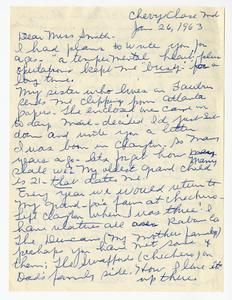 Chevy Chase Md
Jan 26, 1963
Dear Miss Smith.
I had plans to write you for
ages. a temperamental heart plus
kept me "busy" for a
long time.
My sister who lives in Fairburn
sends me clippings from Atlanta
papers. The enclosed one came in
today's mail - decided I'd just sit
down and write you a letter
I was born in Clayton. So many
years ago. let's forget how many
I'll state we! My oldest grand child
is 21 - that dates me.
Every year we would return to
my grand-pa's farm at Chechero.
left Clayton when I was three! I
have relatives all over Rabun Co
The Duncans (My mother's family)
perhaps you have met some of
them; The Swaffords (Chechero) on
Dad's family side. How I love it
up there